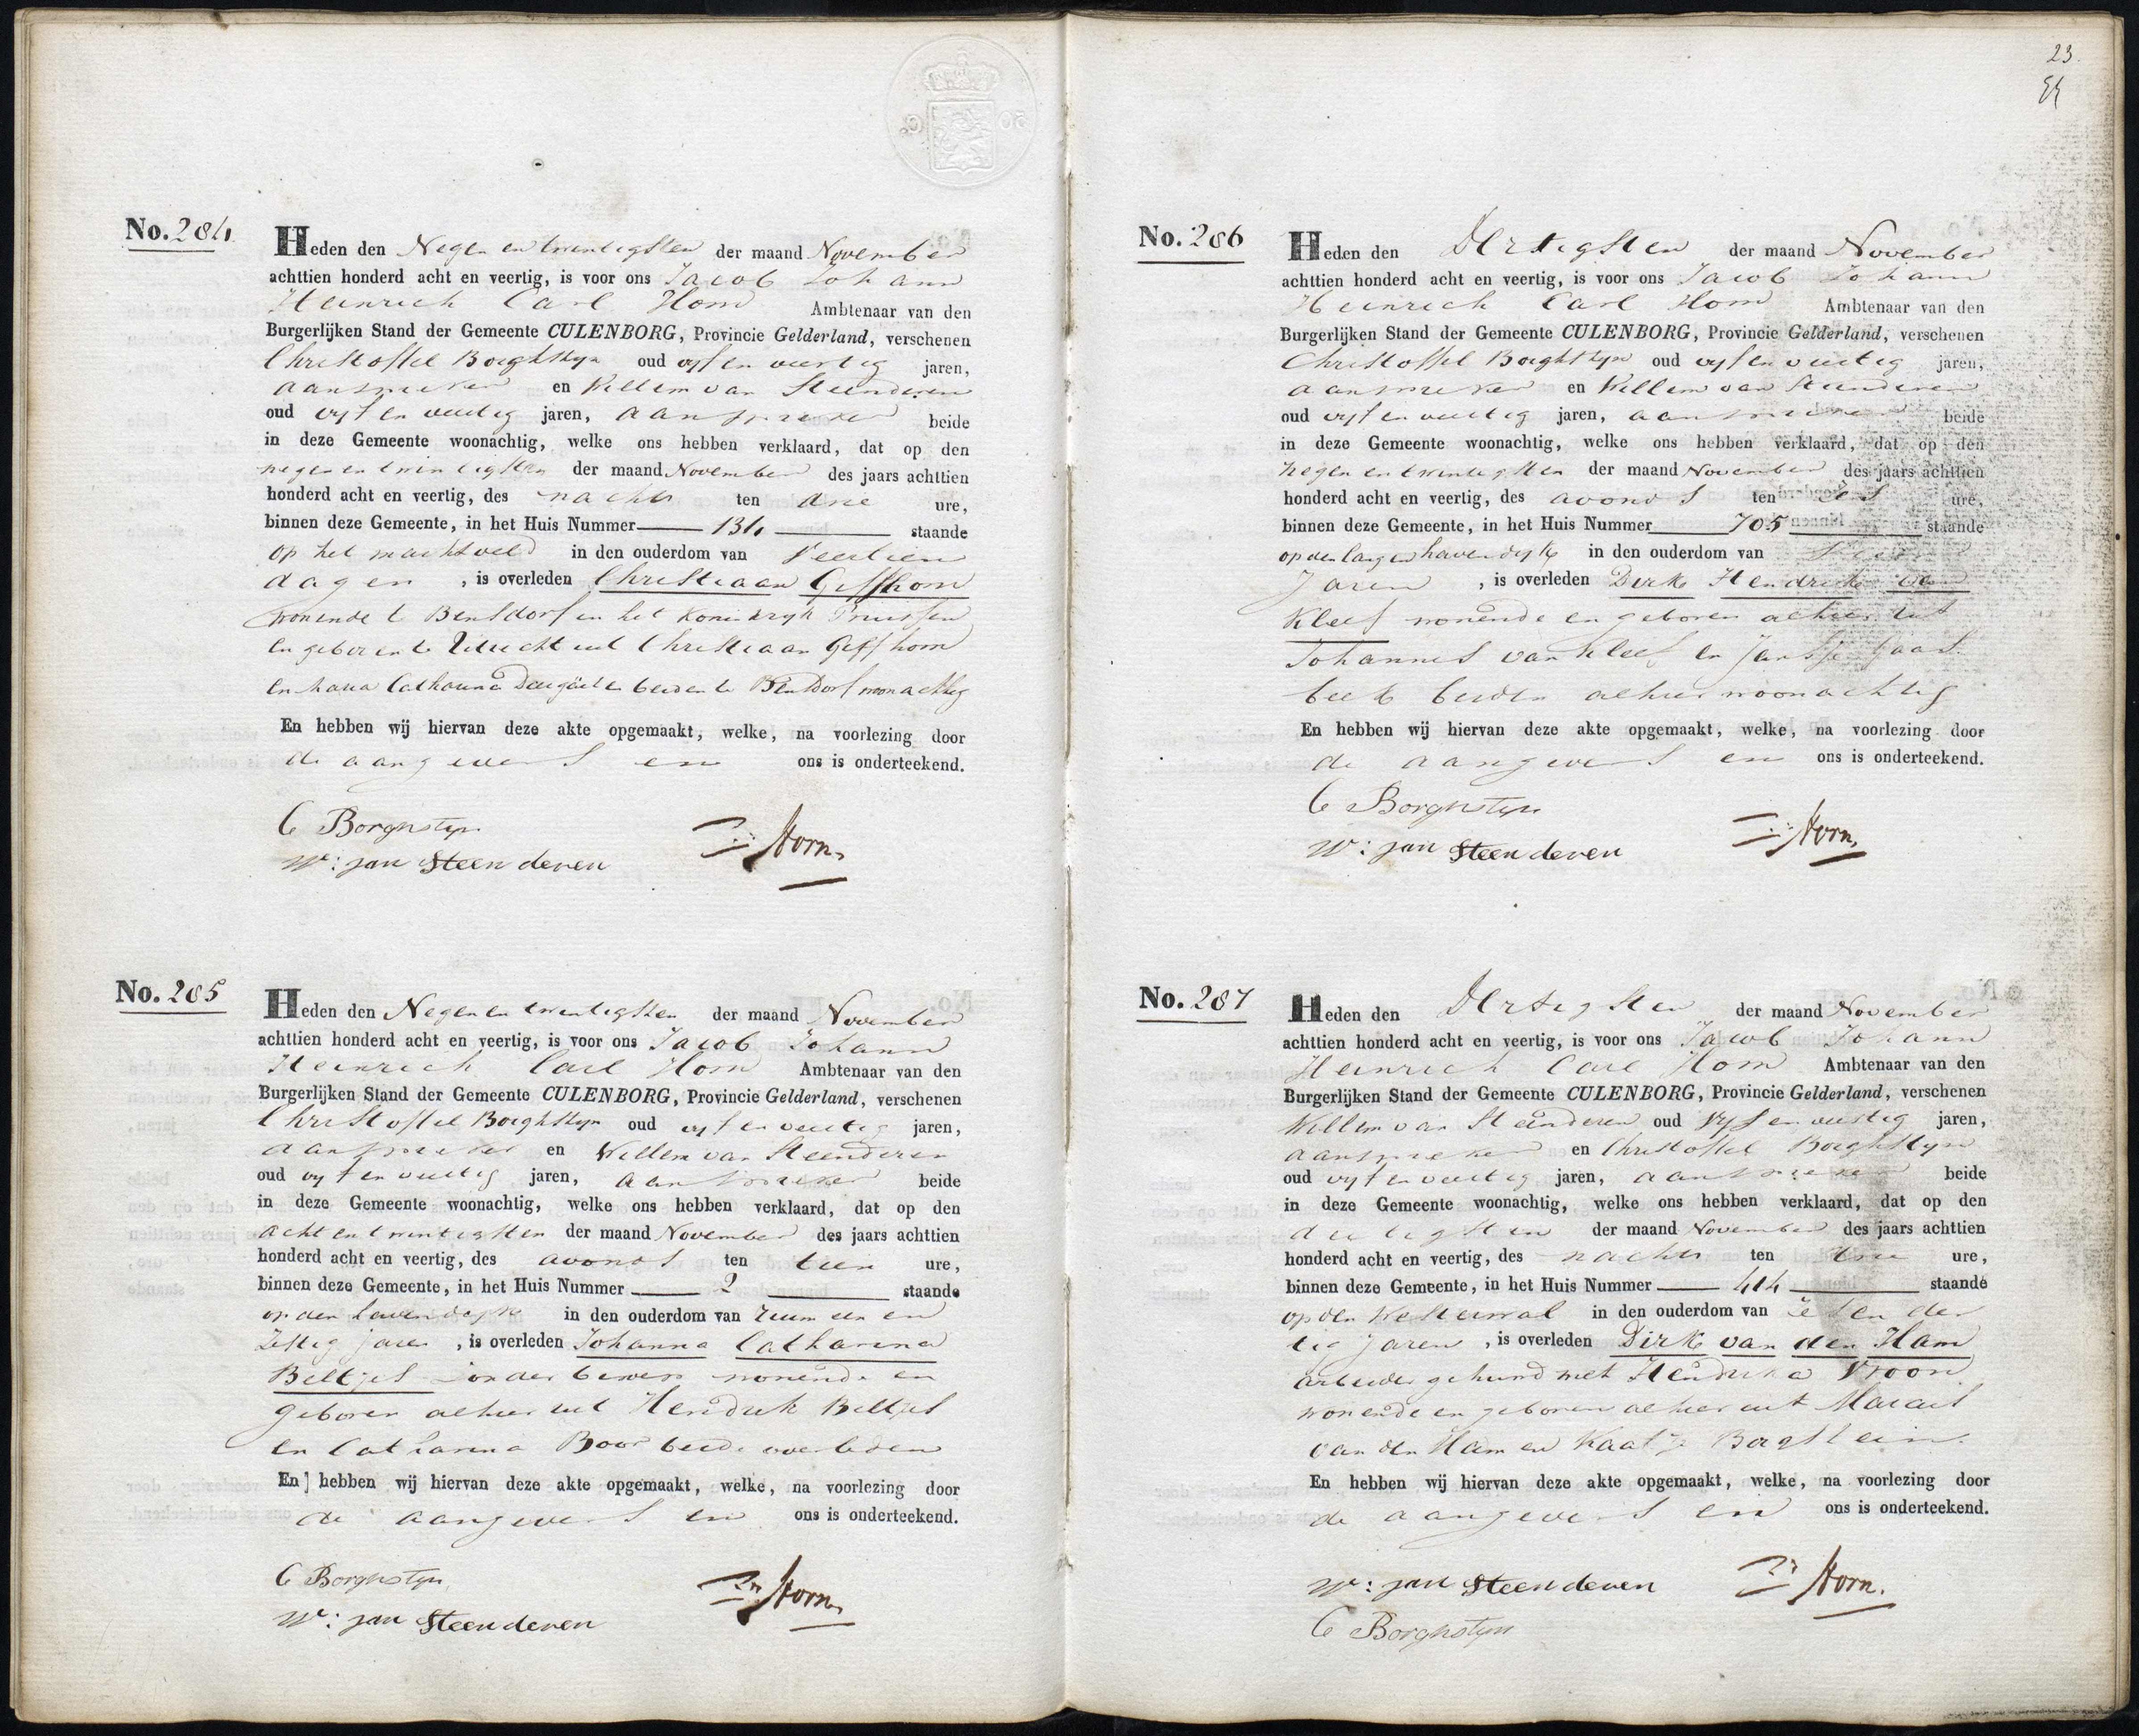 No. 284
Heden den Negen en twintigsten der maand November
achttien honderd acht en veertig, is voor ons Jacob Johann
Heinrich Carl Horn Ambtenaar van den
Burgerlijken Stand der Gemeente CULENBORG, Provincie Gelderland, verschenen
Christoffel Borghstyn oud vyf en veertig jaren,
aanspreker en Willem van Steenderen
oud vyf en veertig jaren, aanspreker beide
in deze Gemeente woonachtig, welke ons hebben verklaard, dat op den
negen en twintigsten der maand November des jaars achttien
honderd acht en veertig, des nachts ten drie ure,
binnen deze Gemeente, in het Huis Nummer 134 staande
op het marktveld in den ouderdom van veertien
dagen, is overleden Christiaan Geffhorn
wonende te Bensdorf in het Koninkryk Pruissen
en geboren te Utrecht uit Christiaan Geffhorn
en Catharina beiden te Bensdorf woonachtig
En hebben wij hiervan deze akte opgemaakt, welke, na voorlezing door
de aangevers en ons is onderteekend.
C Borghstyn
W: van Steenderen Horn.
No. 285
Heden den Negen en twintigsten der maand November
achttien honderd acht en veertig, is voor ons Jacob Johann
Heinrich Carl Horn Ambtenaar van den
Burgerlijken Stand der Gemeente CULENBORG, Provincie Gelderland, verschenen
Christoffel Borghstyn oud vyf en veertig jaren,
aanspreker en Willem van Steenderen
oud vyf en veertig jaren, aanspreker beide
in deze Gemeente woonachtig, welke ons hebben verklaard, dat op den
acht en twintigsten der maand November des jaars achttien
honderd acht en veertig, des avonds ten tien ure,
binnen deze Gemeente, in het Huis Nummer 2 staande
op den havendyk in den ouderdom van ruim een en
zestig jaren, is overleden Johanna Catharina
Beltjes zonder beroep wonende en
geboren alhier uit Hendrik Beltjes
en Catharina Boor beide overleden
En hebben wij hiervan deze akte opgemaakt, welke, na voorlezing door
de aangevers en ons is onderteekend.
C Borghstyn
W: van Steenderen Horn.
23
No. 286
Heden den Dertigsten der maand November
achttien honderd acht en veertig, is voor ons Jacob Johann
Heinrich Carl Horn Ambtenaar van den
Burgerlijken Stand der Gemeente CULENBORG, Provincie Gelderland, verschenen
Christoffel Borghstyn oud vyf en veertig jaren,
aanspreker en Willem van Steenderen
oud vyf en veertig jaren, aanspreker beide
in deze Gemeente woonachtig, welke ons hebben verklaard, dat op den
negen en twintigsten der maand November des jaars achttien
honderd acht en veertig, des avonds ten zes ure,
binnen deze Gemeente, in het Huis Nummer 705 staande
op den langen havendyk in den ouderdom van
Jaren, is overleden Dirk Hendrik van
Kleef wonende en geboren alhier uit
Johannes van Kleef en Jansje Gaas
beek beiden alhier woonachtig
En hebben wij hiervan deze akte opgemaakt, welke, na voorlezing door
de aangevers en ons is onderteekend.
C Borghstyn
W: van Steenderen Horn.
No. 287
Heden den Dertigsten der maand November
achttien honderd acht en veertig, is voor ons Jacob Johann
Heinrich Carl Horn Ambtenaar van den
Burgerlijken Stand der Gemeente CULENBORG, Provincie Gelderland, verschenen
Willem van Steenderen oud Vyf en veertig jaren,
aanspreker en Christoffel Borghstyn
oud vyf en veertig jaren, aanspreker beide
in deze Gemeente woonachtig, welke ons hebben verklaard, dat op den
dertigsten der maand November des jaars achttien
honderd acht en veertig, des nachts ten drie ure,
binnen deze Gemeente, in het Huis Nummer 414 staande
op den Westerwal in den ouderdom van zes en der
tig Jaren, is overleden Dirk van den Ham
arbeider gehuwd met Hendrika Vroon
wonende en geboren alhier uit
van den Ham en Kaatje Borgstein
En hebben wij hiervan deze akte opgemaakt, welke, na voorlezing door
de aangevers en ons is onderteekend.
W: van Steenderen Horn.
C Borghstyn